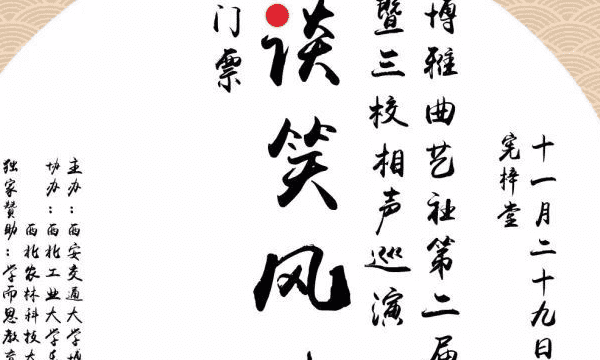 十一月二十九日
宪梓堂
博雅曲艺社第二届
暨三校相声巡演
谈笑风
门票
主办：西安交通大学博
协办：西北工业大学
西北农林科技大
独家赞助：学而思教育